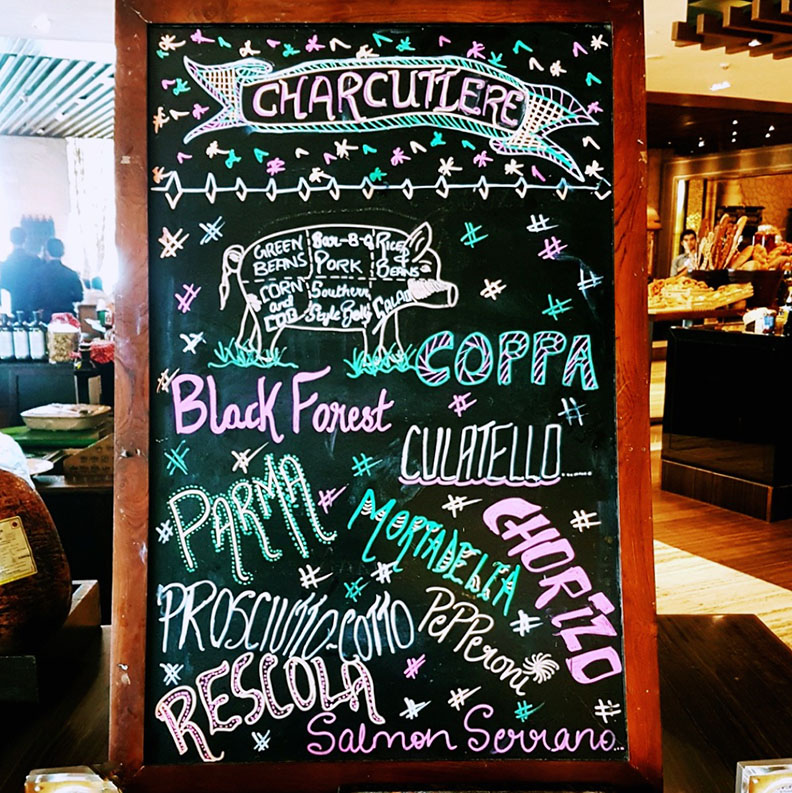 CHARCUTIERE
GREEN BEANS
Bar-B-Q PORK
Rice & BEANS
CORN and COB
Southern Style
COPPA
Black Forest
CULATELLO
PARMA
MORTADELLA
CHORIZO
PROSCIUTTO-COTTO
PePPeroni
RESCOLA
Salmon Serrano...